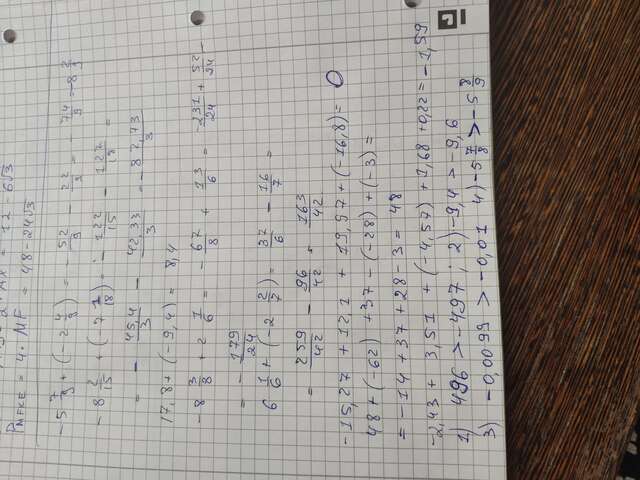 P MFKE = 4 · MF = 48 - 24√3
-5 7/9 + (-2 4/9) = - 52/9 - 22/9 = - 74/9 = -8 2/9
-8 2/15 + (-7 1/18) = - 122/15 - 127/18 =
= - 45,4/3 - 42,33/3 = - 87,73/3
17,8 + (-9,4) = 8,4
-8 3/8 + 2 1/6 = - 67/8 + 13/6 = -231/24 + 52/24 =
= - 179/24
6 1/6 + (-2 2/7) = 37/6 - 16/7 =
= 259/42 - 96/42 = 163/42
-15,27 + 12,1 + 19,97 + (-16,8) = 0
48 + (-62) + 37 - (-28) + (-3) =
= -14 + 37 + 28 - 3 = 48
-2,43 + 3,51 + (-4,57) + 1,68 + 0,22 = -1,59
1) 496 > -497 ; 2) -9,4 > -9,6
3) -0,0099 > -0,01 4) -5 7/8 > -5 8/9